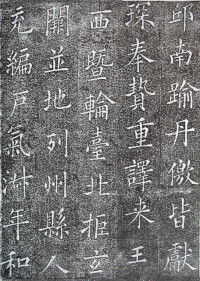 邱南踰丹徼皆獻
琛奉贄重譯来王
西暨輪臺北拒玄
闕並地列州縣人
充編戶氣淋年和